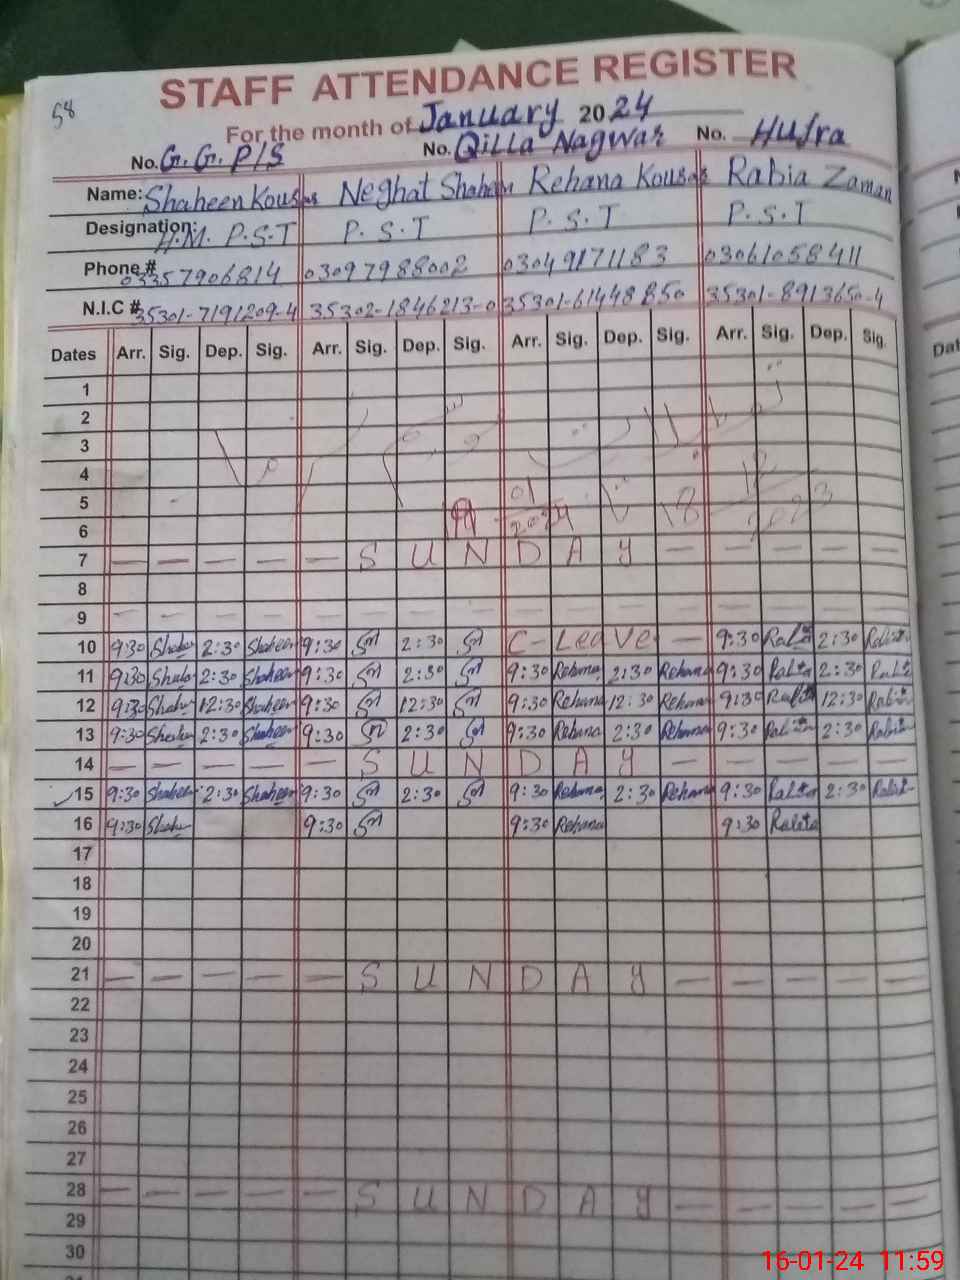 58
STAFF ATTENDANCE REGISTER
For the month of January 2024
No. G.G.P/S No. Qilla Nagwar No. Hujra
Name: Shaheen Kousar Neghat Shaheen Rehana Kousar Rabia Zaman
Designation: H.M. P.S.T P.S.T P.S.T P.S.T
Phone # 03357906814 03097988002 03049171183 03061058411
N.I.C # 35301-7191209-4 35302-1846213-0 35301-61448850 35301-8913650-4
Dates Arr. Sig. Dep. Sig. Arr. Sig. Dep. Sig. Arr. Sig. Dep. Sig. Arr. Sig. Dep. Sig.
1
2
3
4
5 01 18 12
6 2024 2023
7 — — — — — S U N D A Y — — — — —
8
9 — — — — — — — — — — — — — — — —
10 9:30 Shahee 2:30 Shaheen 9:30 2:30 C-Leave — 9:30 Rabia 2:30 Rabia
11 9:30 Shahe 2:30 Shaheen 9:30 2:30 9:30 Rehana 2:30 Rehana 9:30 Rabia 2:30 Rabia
12 9:30 Shahe 12:30 Shaheen 9:30 12:30 9:30 Rehana 12:30 Rehana 9:30 Rabia 12:30 Rabia
13 9:30 Shahee 2:30 Shaheen 9:30 2:30 9:30 Rehana 2:30 Rehana 9:30 Rabia 2:30 Rabia
14 — — — — — S U N D A Y — — — — —
15 9:30 Shaheen 2:30 Shaheen 9:30 2:30 9:30 Rehana 2:30 Rehana 9:30 Rabia 2:30 Rabia
16 9:30 Shahe 9:30 9:30 Rehana 9:30 Rabia
17
18
19
20
21 — — — — — S U N D A Y — — — — —
22
23
24
25
26
27
28 — — — — — S U N D A Y — — — — —
29
30
16-01-24 11:59